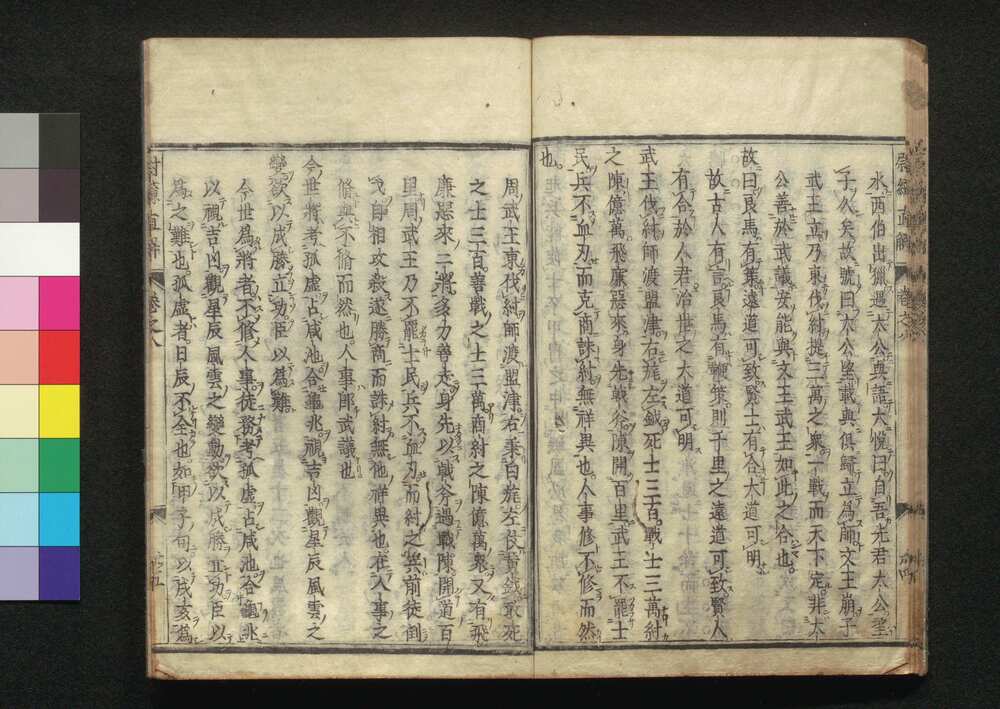 水西伯出獵遇太公與語大悅曰自吾先君太公望
子久矣故號曰太公望載與俱歸立爲師文王崩子
武王立乃東伐紂提三萬之衆一戰而天下定非太
公善於武議安能與文王武王如此之合也
故曰良馬有策遠道可致賢士有合大道可明
故古人有言良馬有鞭策則千里之遠道可致賢人
有合於人君治世之大道可明
武王伐紂師渡盟津右旄左鉞死士三百戰士三萬紂
之陳億萬飛廉惡來身先戟斧陳開百里武王不罷士
民兵不血刃而克商誅紂無祥異也人事修不修而然
也
周武王東伐紂師渡盟津右秉白旄左仗黃鉞敢死
之士三百善戰之士三萬商紂之陳億萬衆又有飛
廉惡來二將多力善走身先以戟斧過戰陳開道百
里周武王乃不罷士民兵不血刃而紂之兵前徒倒
戈自相攻殺遂勝商而誅紂無他祥異也在人事之
脩與不脩而然也人事卽武議也
今世將考孤虛占咸池合龜兆視吉凶觀星辰風雲之
變欲以成勝立功臣以爲難
今世爲將者不修人事徒務考孤虛占咸池合龜兆
以視吉凶觀星辰風雲之變動欲以成勝立功臣以
爲之難也孤虛者日辰不全也如甲子旬以戌亥爲
尉繚直解 卷之八